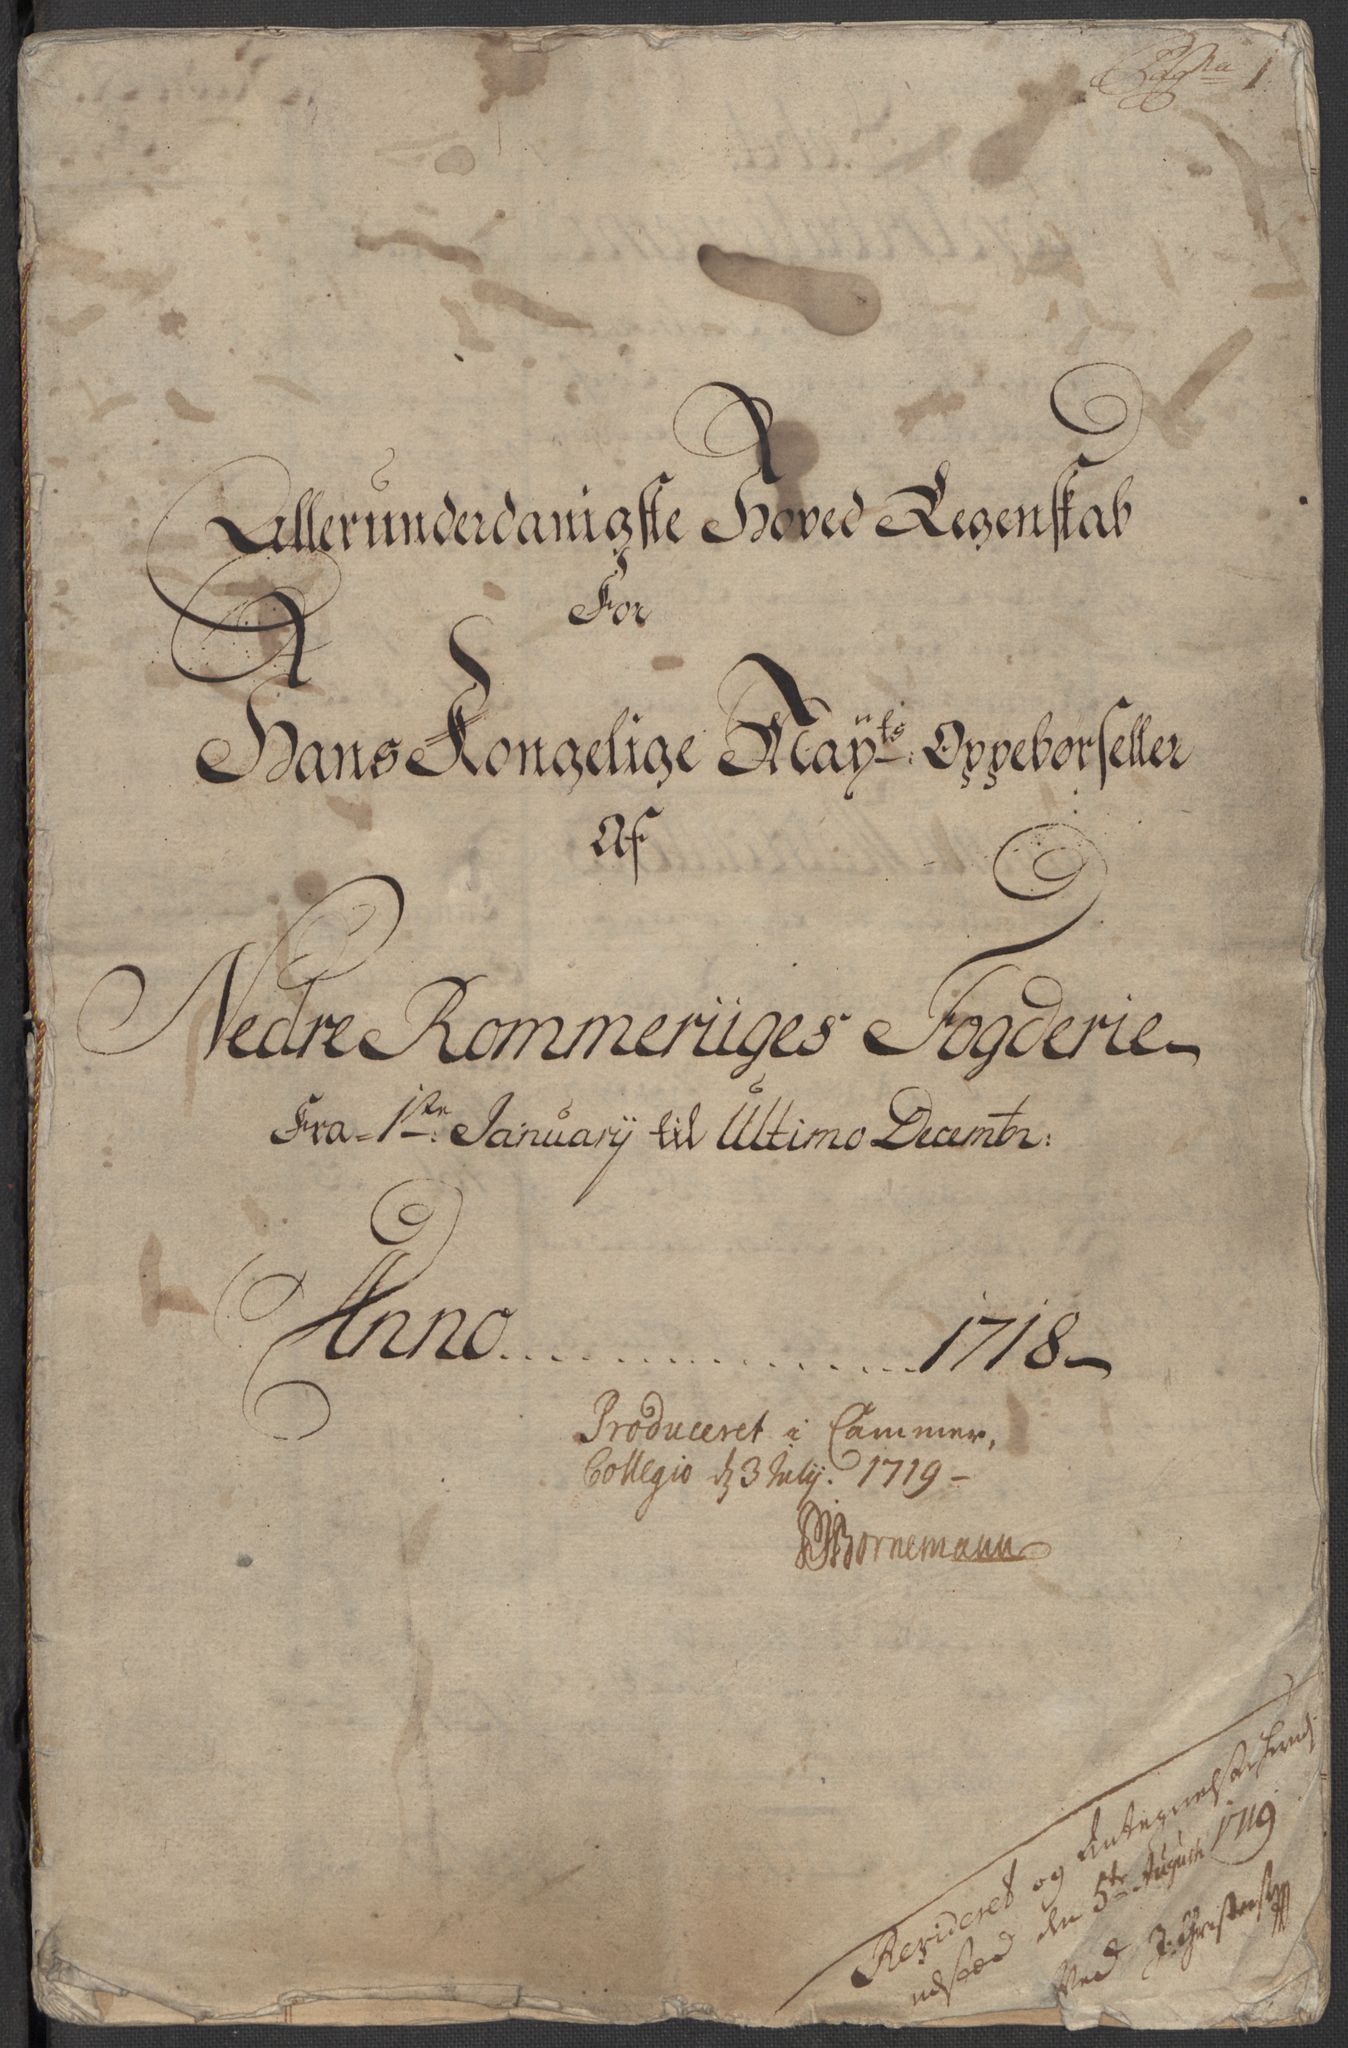 Pagina 1
Allerunderdanigste Hoved Regenskab
For
Hans Kongelige Maÿts: Oppebørseller
Af
Nedre Rommeriiges Fogderie
Fra 1ste: Januarÿ til Ultimo Decembr:
Anno . . . . . . . . . . . . . . . 1718
Produceret i Cammer,
Collegio d 3 Julÿ. 1719
Bornemann
Revideret og Antegnelserne
udstæd den 5te August 1719
Ved J: Christensen